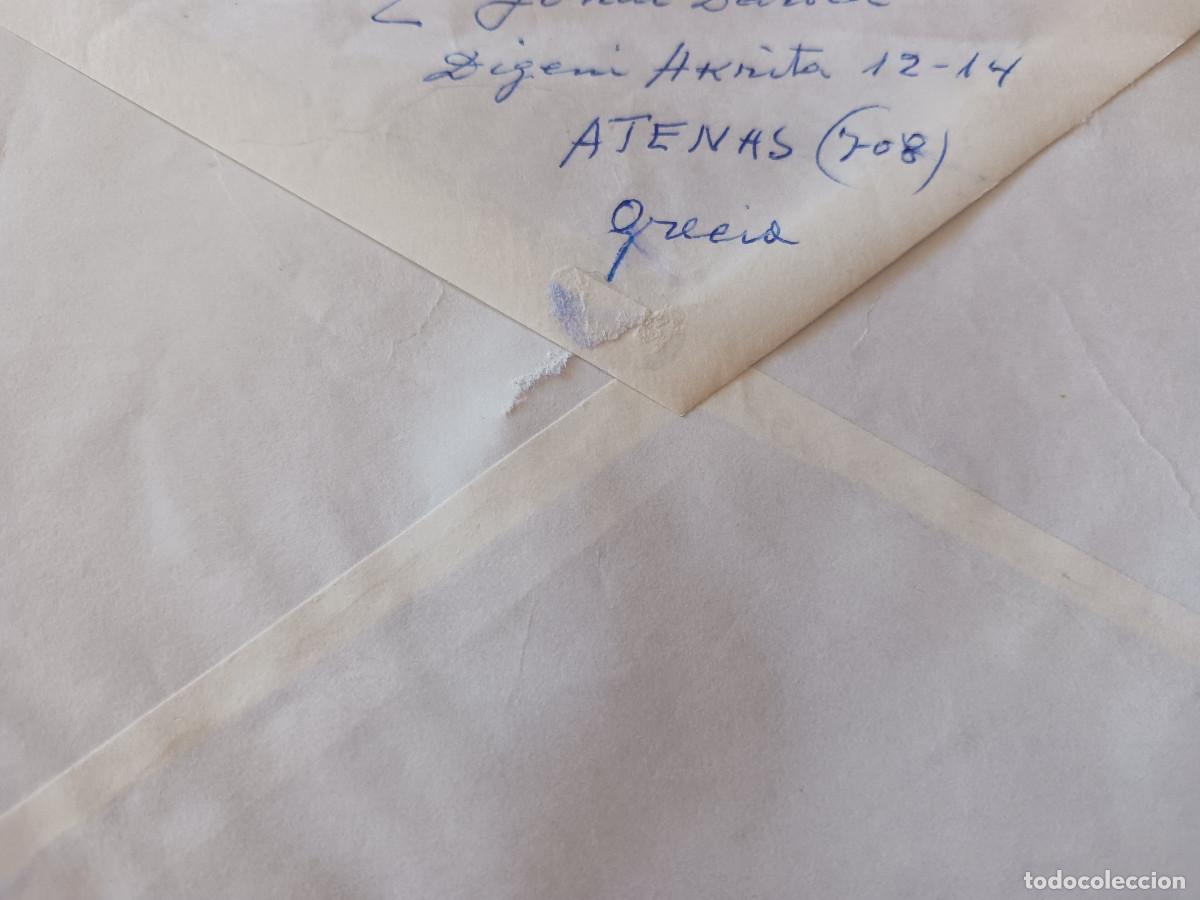 Digeni Akrita 12-14
ATENAS (708)
Grecia
todocoleccion